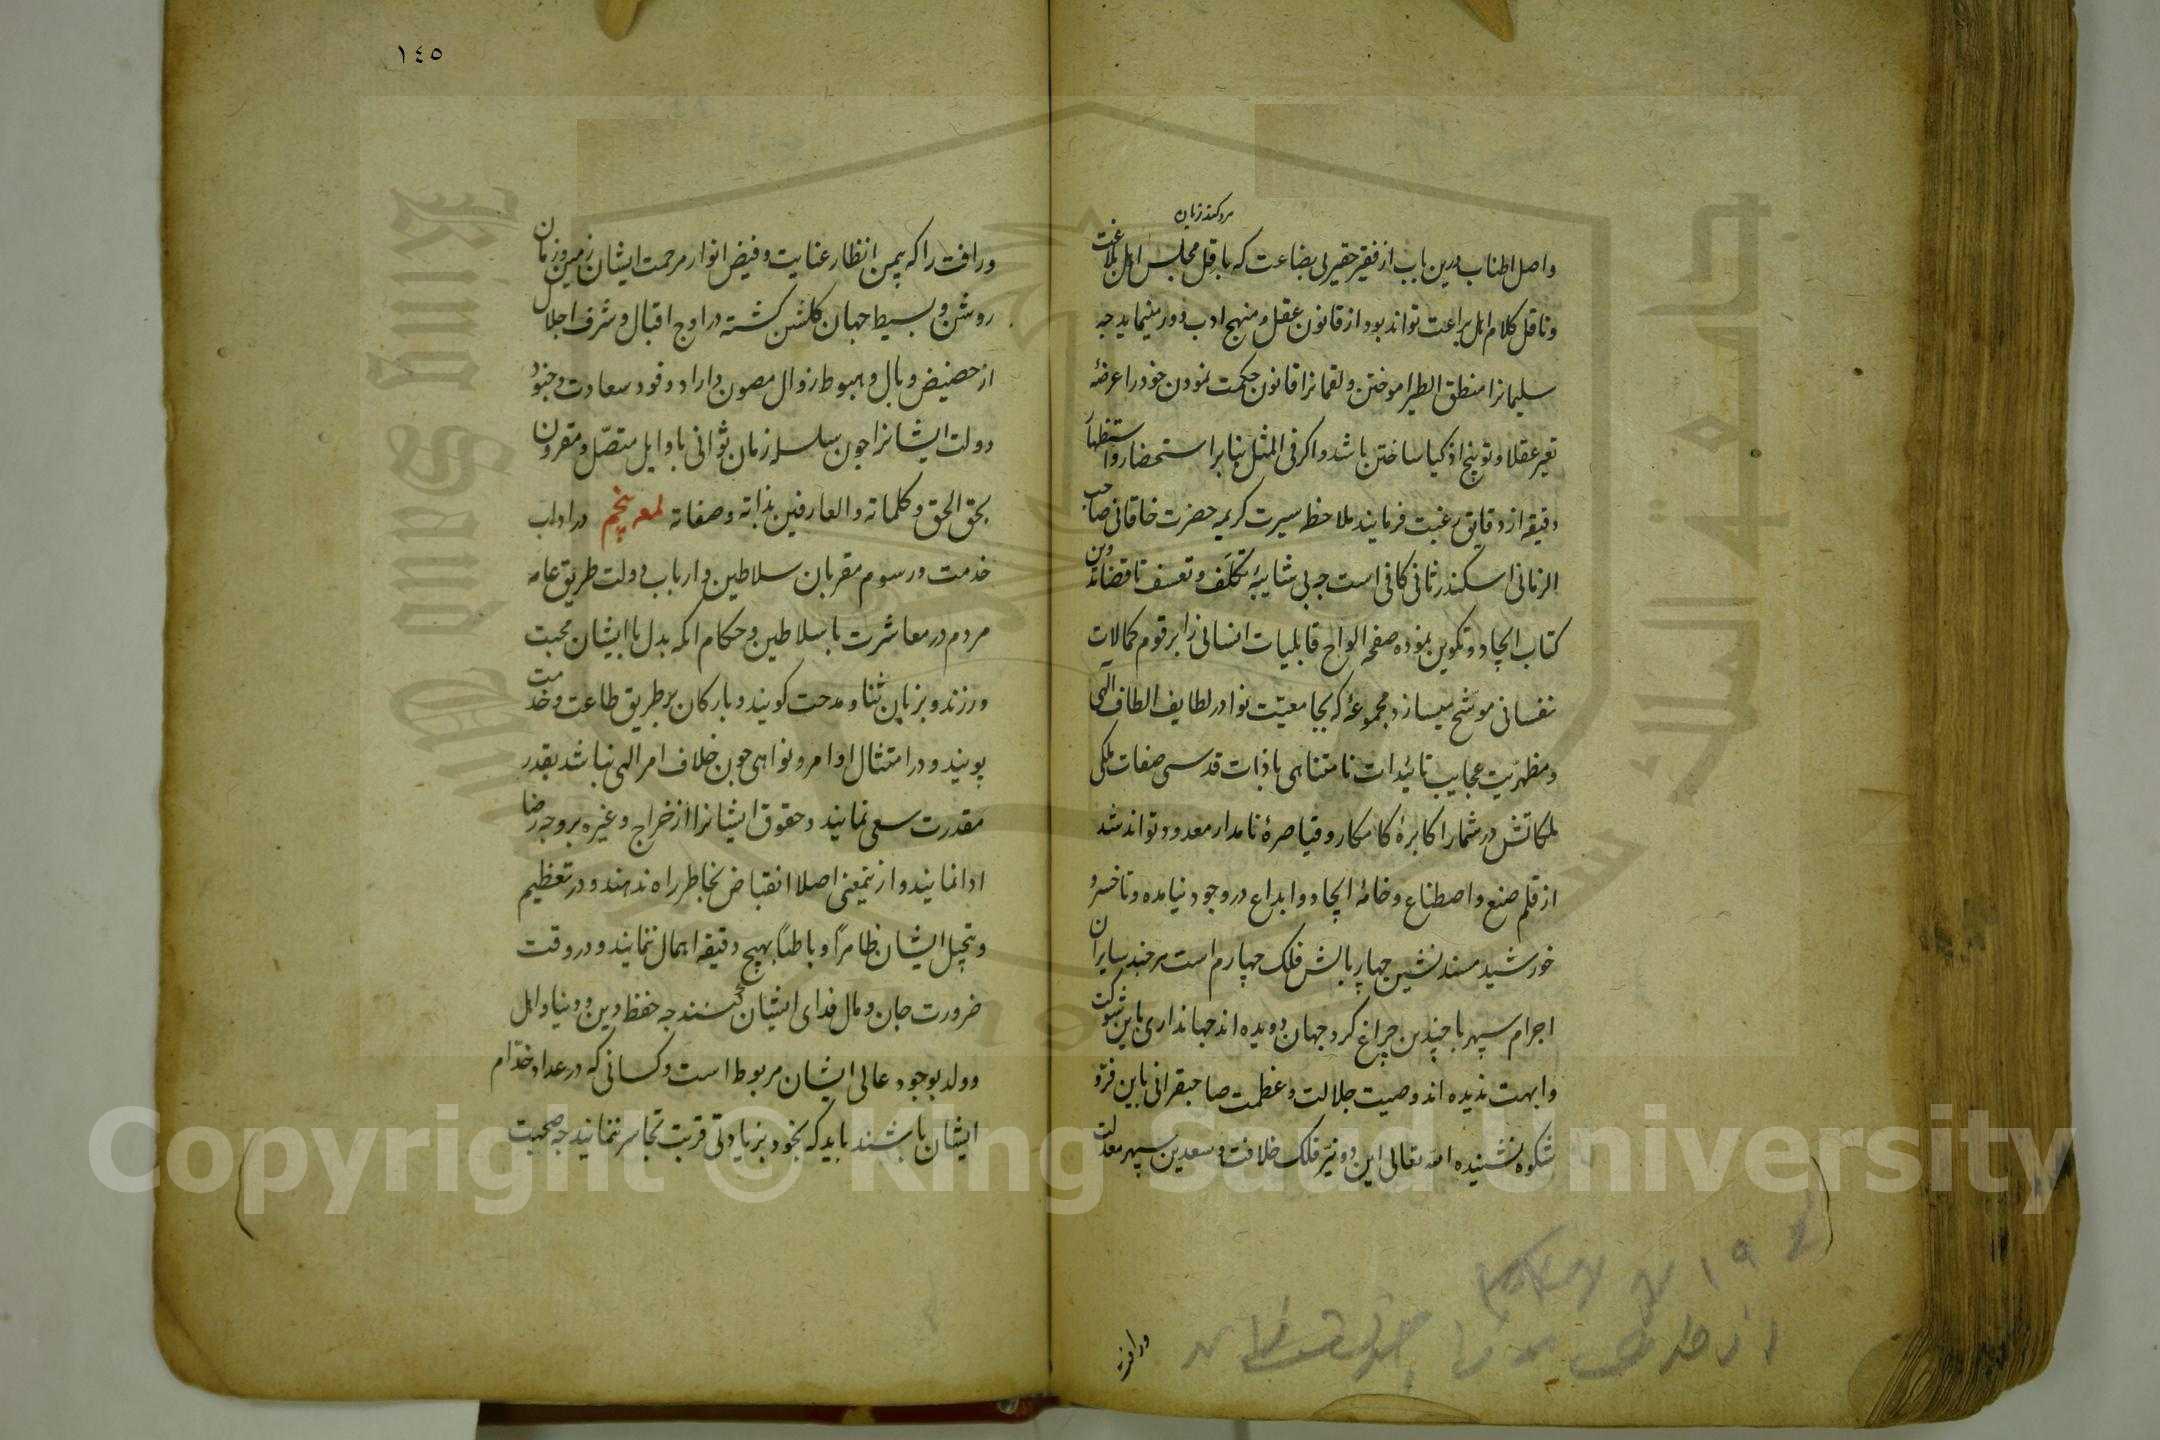 واصل اطناب درین باب از فقیر حقیر بی بضاعت که باقل مجلس اهل بلاغت
وناقل کلام اهل براعت تواند بود از قانون عقل و منهج ادب دور مینماید چه
سلیمانرا منطق الطیر اموختن ولقمانرا قانون حکمت نمودن خود را عرضهٔ
تعییر عقلا و توبیخ اذکیا ساختن باشد واکر فی المثل بنابر استحضار واستظهار
دقیقه از دقایق رغبت فرمایند ملاحظه سیرت کریمه حضرت خاقانی صاحب
الزمانی اسکندر ثانی کافی است چه بی شایبهٔ تکلف و تعسف تا قضا تدوین
کتاب ایجاد و تکوین نموده صفحه الواح قابلیات انسانی را برقوم کمالات
نفسانی موشح میسازد مجموعهٔ که بجامعیّت نوادر لطایف الطاف الهی
ومظهریّت عجایب تائیدات نامتناهی با ذات قدسی صفات ملکی
ملکاتش در شمار اکابرهٔ کامکار و قیاصرهٔ نامدار معدود تواند شد
از قلم صنع و اصطناع و خامهٔ ایجاد و ابداع در وجود نیامده و تا خسرو
خورشید مسند نشین چهار بالش فلک چهارم است هر چند سایران
اجرام سپهر با چندین چراغ کرد جهان دویده اند جهانداری باین شوکت
وابهت ندیده اند وصیت جلالت و عظمت صاحبقرانی باین فرّ و
شکوه نشنیده الله تعالی این دو نیّر فلک خلافت و سعدین سپهر معدلت
ورافت
١٤٥
ورافت را که بیمن انظار عنایت و فیض انوار مرحمت ایشان زمین وزمان
روشن و بسیط جهان کلشن کشته در اوج اقبال و شرف اجلال
از حضیض وبال و هبوط زوال مصون داراد و فود سعادت و جنود
دولت ایشانرا چون سلسله زمان ثوانی باوایل متصّل و مقرون
بحق الحق و کلماته والعارفین بذاته وصفاته لمعه پنجم در اداب
خدمت ورسوم مقربان سلاطین و ارباب دولت طریق عامه
مردم در معاشرت با سلاطین و حکام انکه بدل با ایشان محبت
ورزند و بزبان ثنا و مدحت کویند و بارکان بر طریق طاعت و خدمت
پویند و در امتثال اوامر و نواهی چون خلاف امر الهی نباشد بقدر
مقدرت سعی نمایند و حقوق ایشانرا از خراج و غیره بروجه رضا
ادا نمایند و از نیمعنی اصلا انقباض بخاطر راه ندهند و در تعظیم
وتبجیل ایشان ظاهراً و باطناً بهیچ دقیقه اهمال ننمایند و در وقت
ضرورت جان و مال فدای ایشان کنند چه حفظ دین و دنیا و اهل
وولد بوجود عالی ایشان مربوط است و کسانی که در عداد خدّام
ایشان باشند باید که بخود بزیادتی قربت تجاسر ننمایند چه صحبت
King Saud University
Copyright © King Saud University